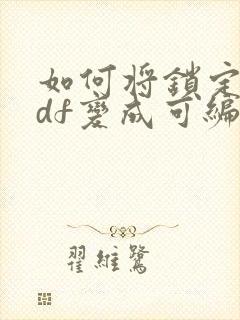 如何将鎖定
df變成可編
翟維鷺